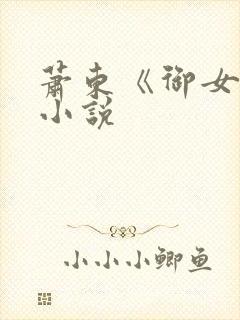 蕭東《御女
小說
小小小鲫鱼